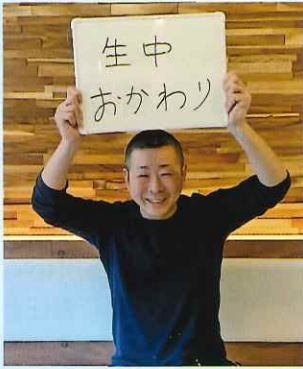 生中
おかわり